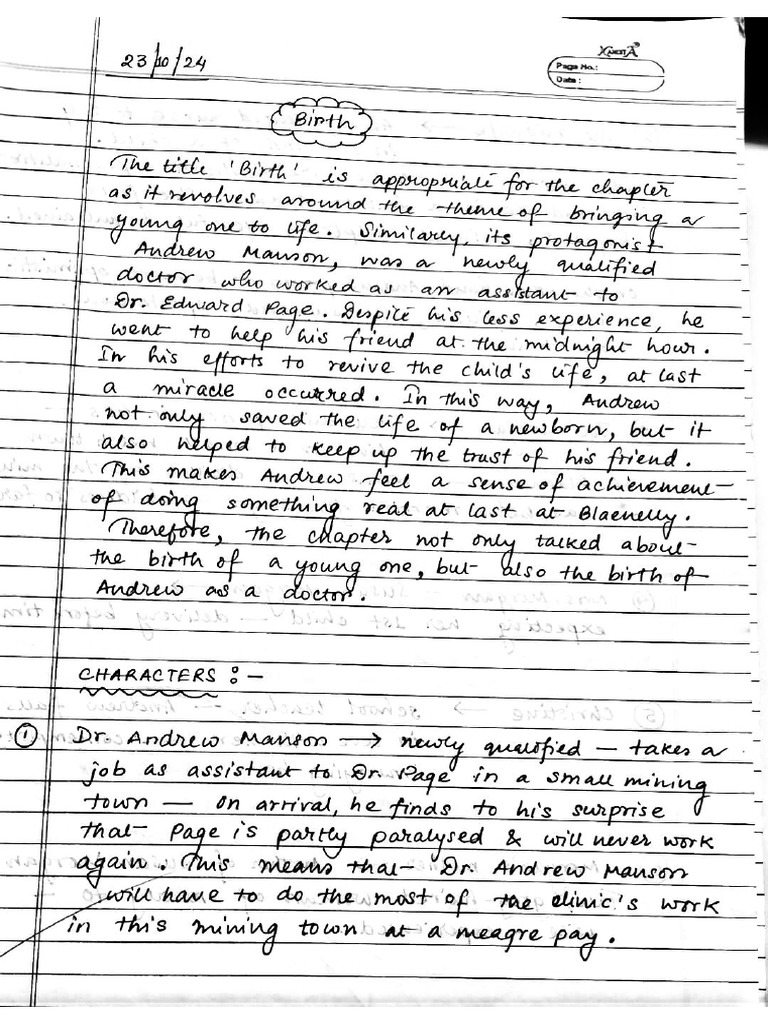 23/10/24
Page No.:
Date :
Birth
The title 'Birth' is appropriate for the chapter
as it revolves around the theme of bringing a
young one to life. Similarly, its protagonist
Andrew Manson, was a newly qualified
doctor who worked as an assistant to
Dr. Edward Page. Despite his less experience, he
went to help his friend at the midnight hour.
In his efforts to revive the child's life, at last
a miracle occurred. In this way, Andrew
not only saved the life of a newborn, but it
also helped to keep up the trust of his friend.
This makes Andrew feel a sense of achievement
of doing something real at last at Blaenelly.
Therefore, the chapter not only talked about
the birth of a young one, but also the birth of
Andrew as a doctor.
CHARACTERS :-
① Dr. Andrew Manson → newly qualified - takes a
job as assistant to Dr. Page in a small mining
town - On arrival, he finds to his surprise
that Page is partly paralysed & will never work
again. This means that Dr. Andrew Manson
will have to do the most of the clinic's work
in this mining town at a meagre pay.